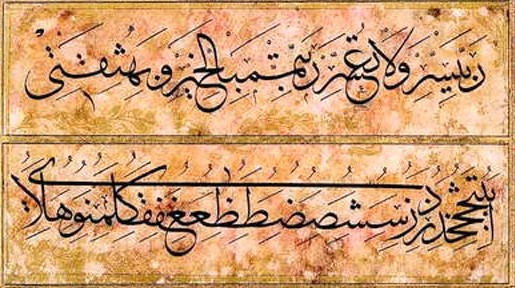 رب يسر ولا تعسر رب تمم بالخير وبه ثقتي
ا ب ت ج ح خ د ذ ر ز س ش ص ض ط ظ ع غ ف ق ك ل م ن و ه لا ى